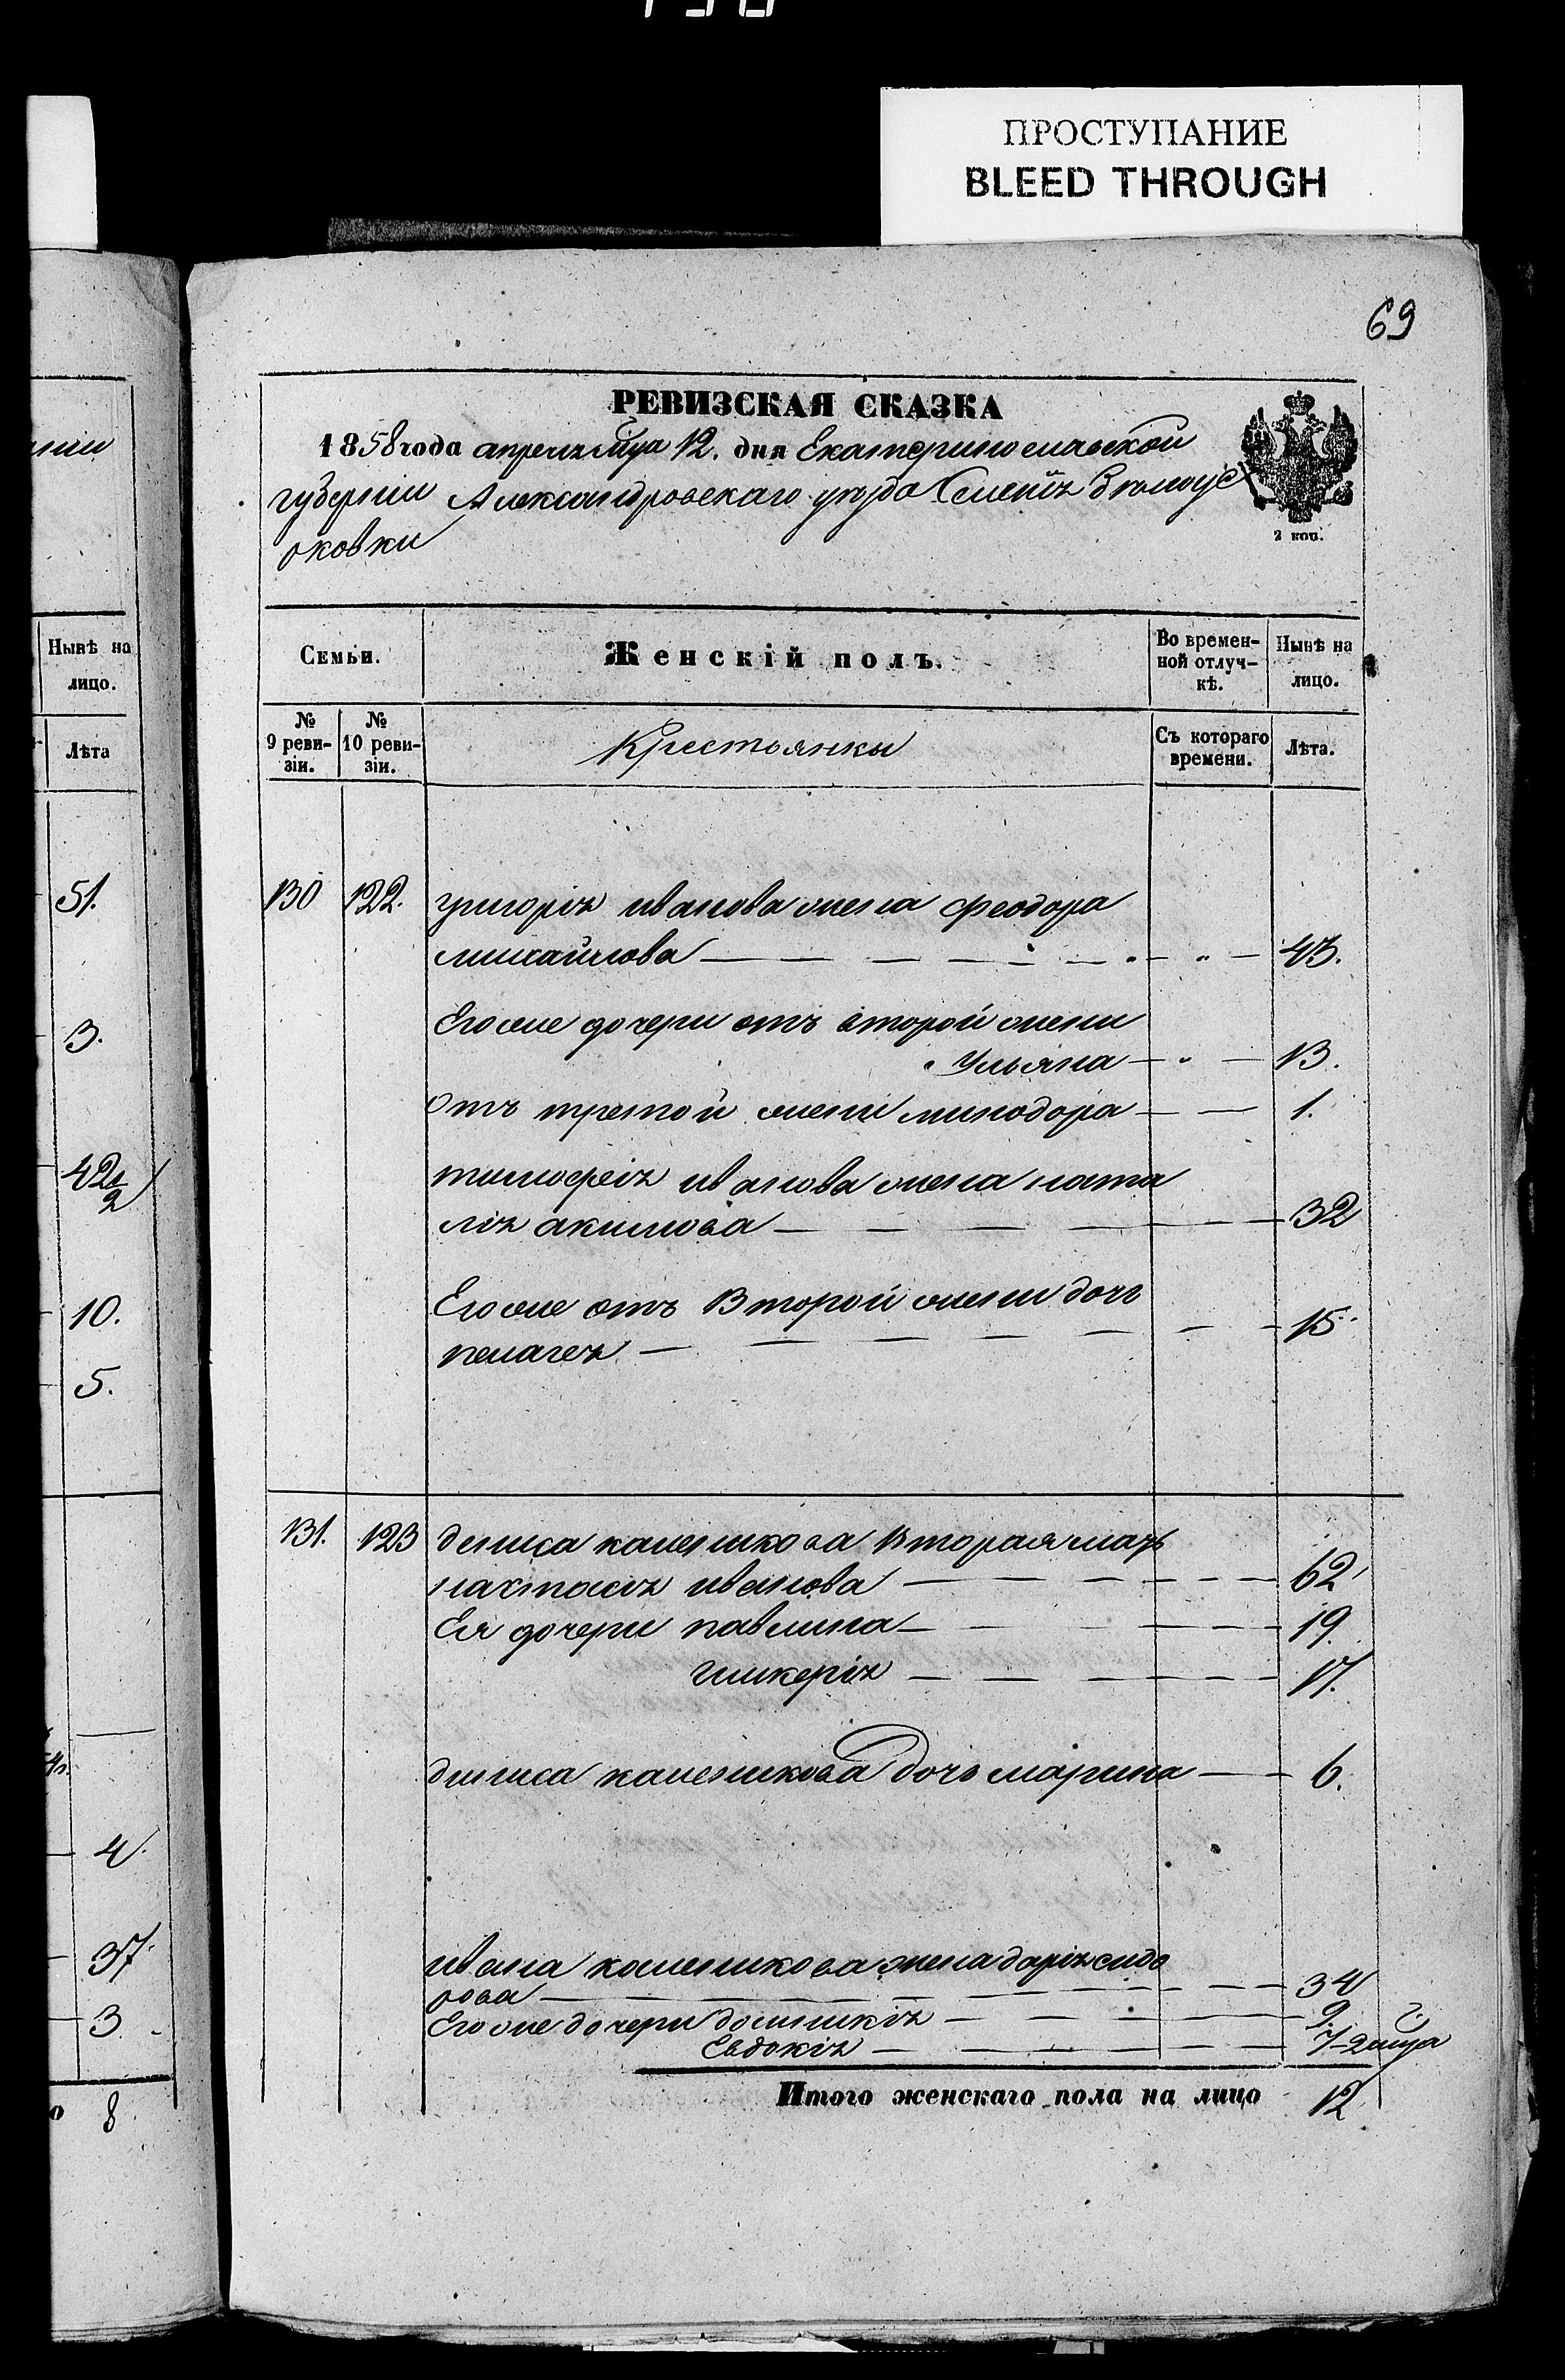 ПРОСТУПАНИЕ
BLEED THROUGH
69
РЕВИЗСКАЯ СКАЗКА
1858 года апреля мца 12. дня Екатеринославской
губернии Александровскаго уезда
2 коп.
Семьи.
Женскій полъ.
Во времен-
ной отлуч-
кѣ.
Нынѣ на
лицо.
№
9 реви-
зіи.
№
10 реви-
зіи.
Крестьянки
Съ котораго
времени.
Лѣта.
130 122. григорія иванова жена феодора
михайлова 43.
Его же дочери отъ второй жени
Ульяна 13.
отъ третой жени минодора 1.
тимофеія иванова жена ната
лія акимова 32
Его же отъ Второй жени дочь
пелагея 15.
131. 123 дениса калешикова Вторая мать
настасія иванова 62
Ея дочери павлина 19.
гликерія 17.
дениса калешикова дочь марина 6.
ивана калешикова жена дарія сидо
рова 34
Его же дочери домникія 9.
Евдокія 7-2 мца
Итого женскаго пола на лицо 12
Нынѣ на
лицо.
Лѣта
51.
3.
10.
5.
4.
37.
3.
8